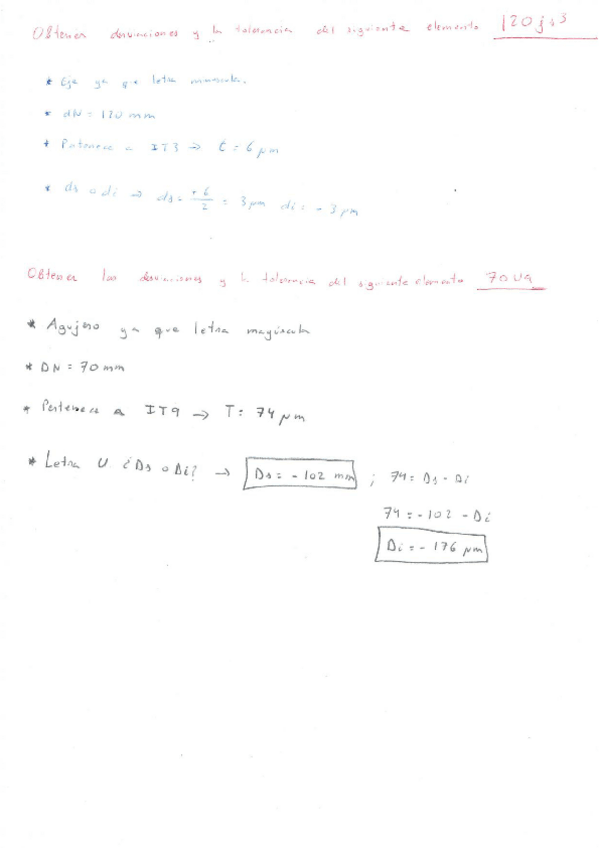 Obtener desviaciones y la tolerancia del siguiente elemento 120js3
* Eje ya que letra minuscula.
* dN = 120 mm
* Pertenece a IT3 → t = 6 μm
* ds o di → ds = +6/2 = 3 μm di = - 3 μm
Obtener las desviaciones y la tolerancia del siguiente elemento 70U9
* Agujero ya que letra mayúscula
* DN = 70 mm
* Pertenece a IT9 → T = 74 μm
* Letra U ¿Ds o Di? → Ds = - 102 mm ; 74 = Ds - Di
74 = - 102 - Di
Di = - 176 μm